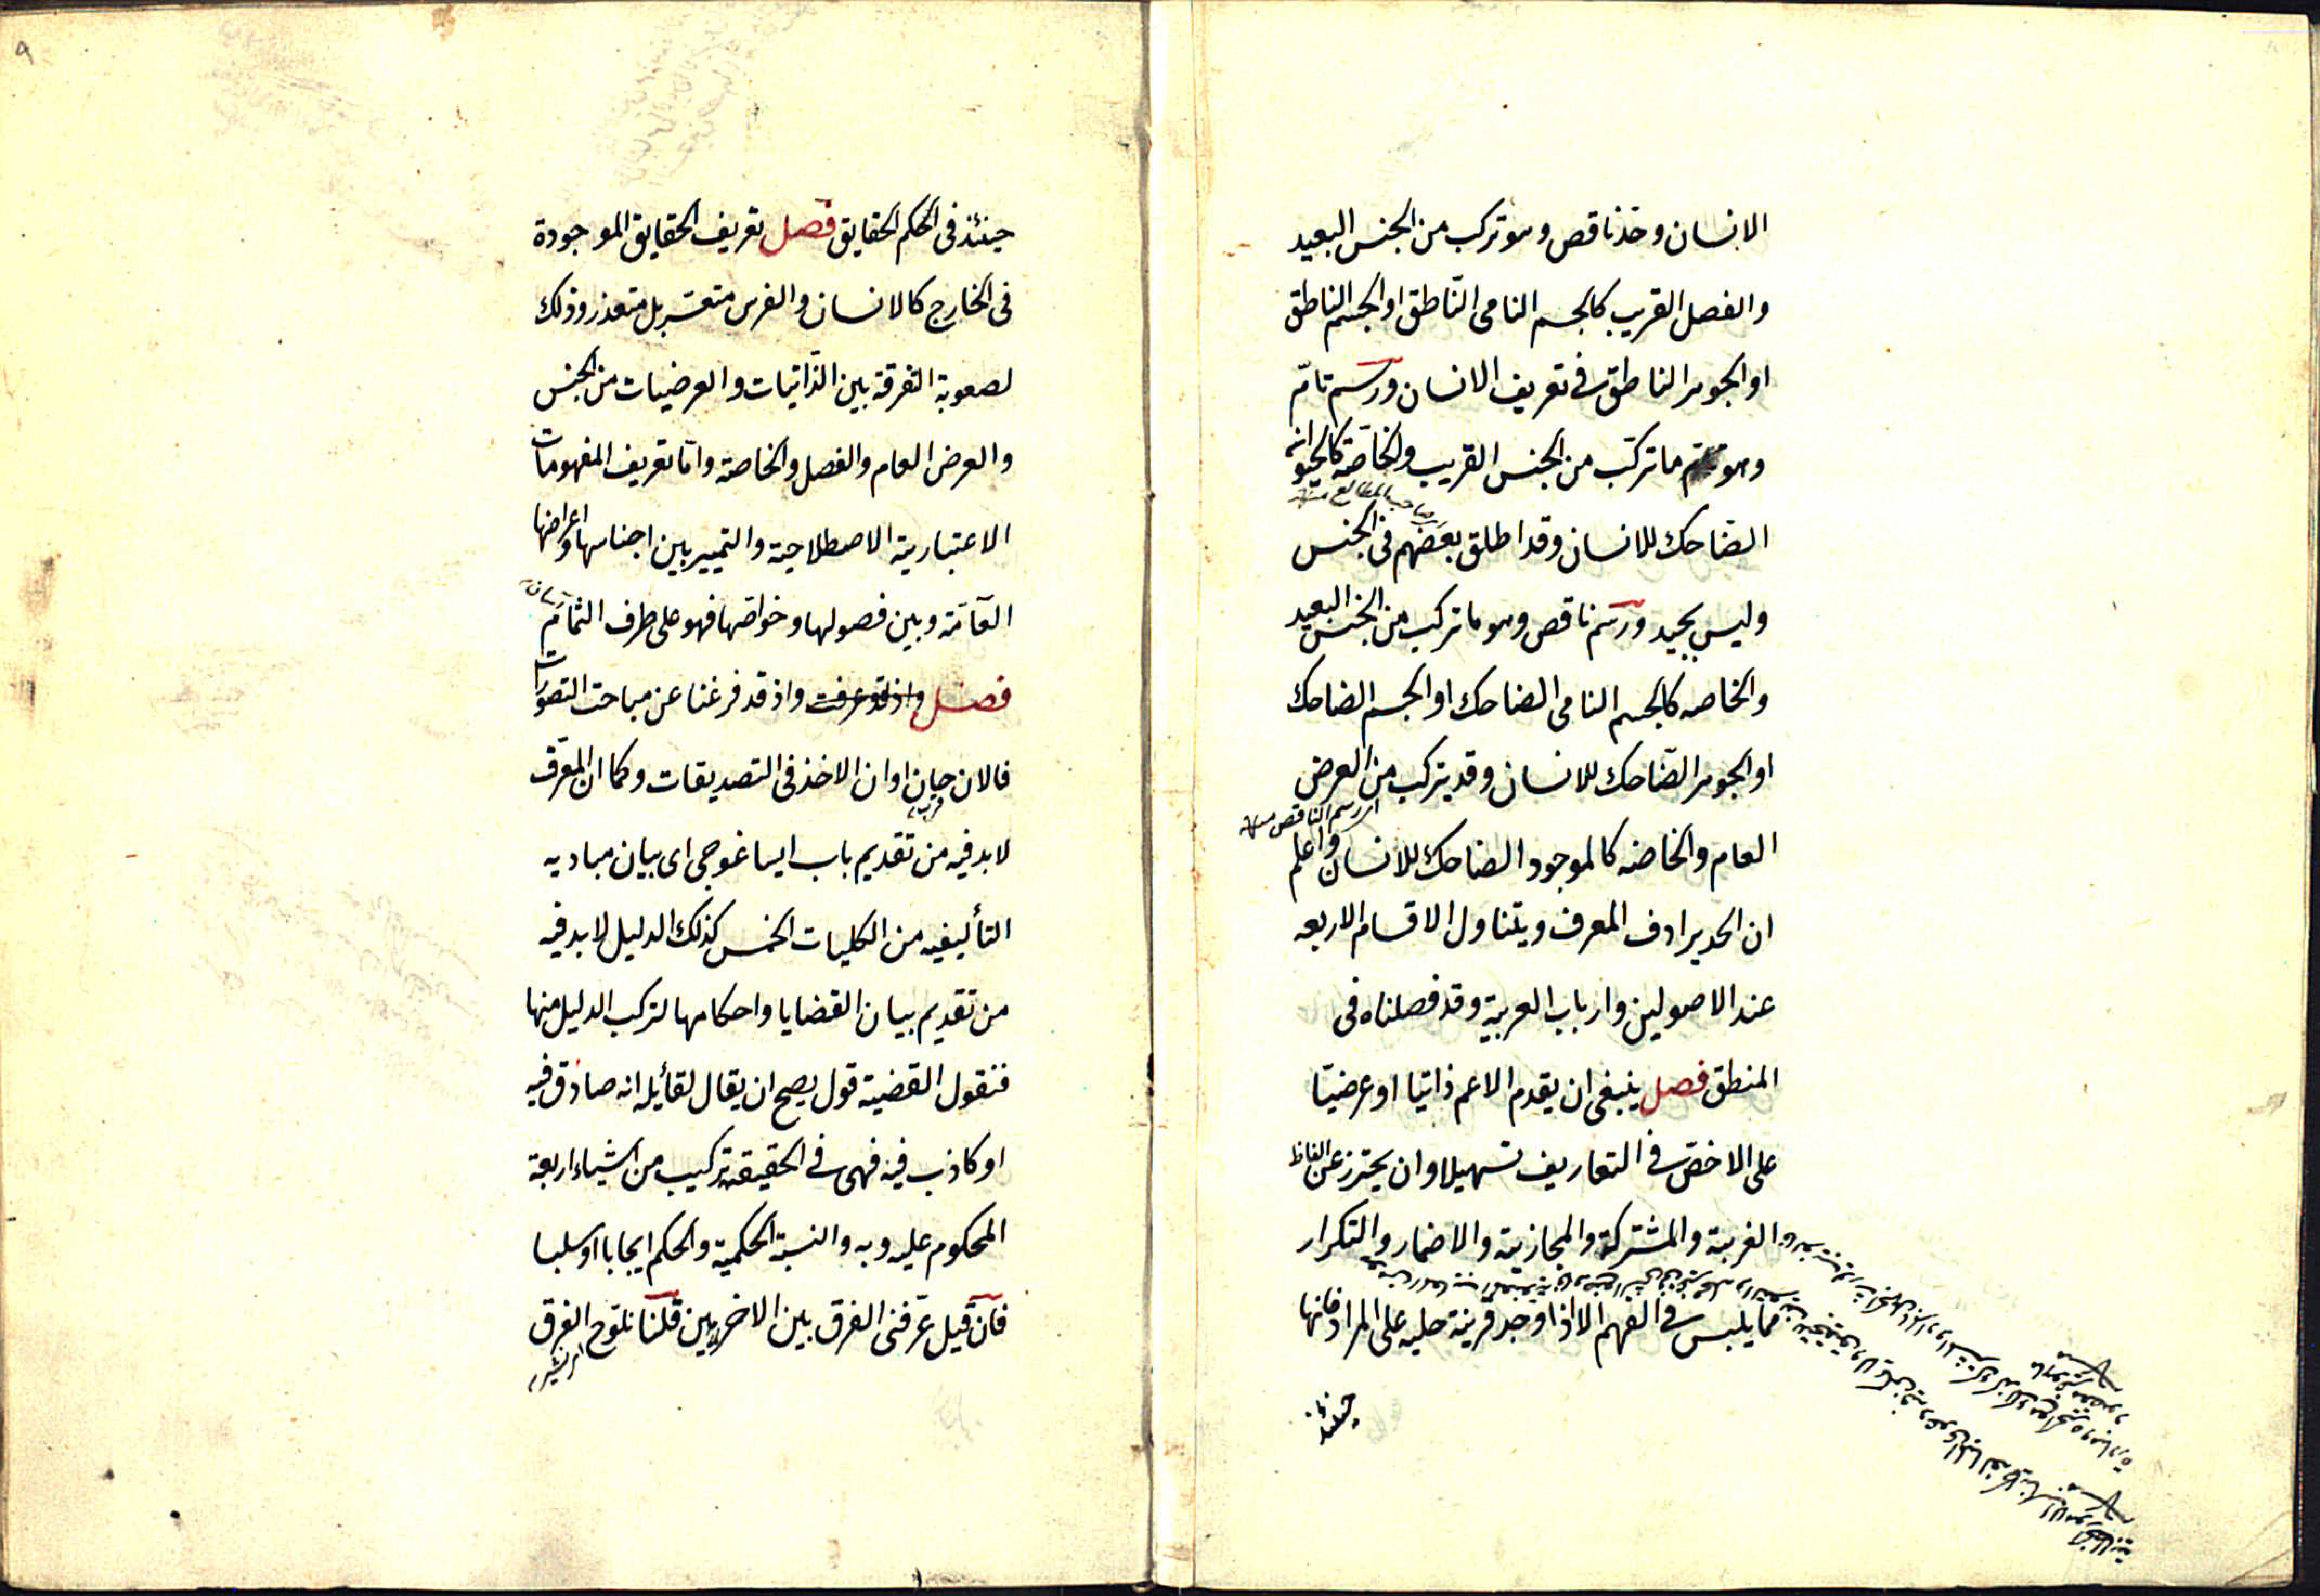 الانسان وحد ناقص وهو تركب من الجنس البعيد
والفصل القريب كالجسم النامى الناطق او الجسم الناطق
او الجوهر الناطق فى تعريف الانسان ورسم تامّ
وهو ما تركب من الجنس القريب والخاصة كالحيوان
صاحب المطالع منه
الضاحك للانسان وقد اطلق بعضهم فى الجنس
وليس بجيد ورسم ناقص وهو ما تركب من الجنس البعيد
والخاصه كالجسم النامى الضاحك او الجسم الضاحك
او الجوهر الضاحك للانسان وقد يتركب من العرض
اى رسم الناقص منه
العام والخاصه كالموجود الضاحك للانسان واعلم
ان الحد يرادف المعرف ويتناول الاقسام الاربعه
عند الاصولين وارباب العربية وقد فصلناه فى
المنطق فصل ينبغى ان يقدم الاعم ذاتيا او عرضيّا
على الاخصّ فى التعاريف تسهيلا وان يحترز عن الفاظ
الغريبة والمشتركة والمجازية والاضمار والتكرار
مما يلبس فى الفهم الا اذا وجد قرينة جليه على المراد فانها
حينئذ
٩
حينئذ فى الحكم الحقايق فصل تعريف الحقايق الموجودة
فى الخارج كالانسان والفرس متعسر بل متعذر وذلك
لصعوبة التفرقة بين الذّاتيات والعرضيات من الجنس
والعرض العام والفصل والخاصة وامّا تعريف المفهومات
الاعتبارية الاصطلاحية والتمييز بين اجناسها واعراضها
العآمّة وبين فصولها وخواصّها فهو على طرف الثمام
فصل واذ قد عرفت واذ قد فرغنا عن مباحث التصورات
فالان حان اوان الاخذ فى التصديقات وكما ان المعرّف
قرب
لابد فيه من تقديم باب ايساغوجى اى بيان مباديه
التأليفيه من الكليات الخمس كذلك الدليل لابد فيه
من تقديم بيان القضايا واحكامها لتركب الدليل منها
فنقول القضية قول يصح ان يقال لقائله انه صادق فيه
او كاذب فيه فهى فى الحقيقة تركيب من اشياء اربعة
المحكوم عليه وبه والنسبة الحكمية والحكم ايجابا او سلبا
فان قيل عرّفنى الفرق بين الاخريين قلنا نلوّح الفرق
اى نشير